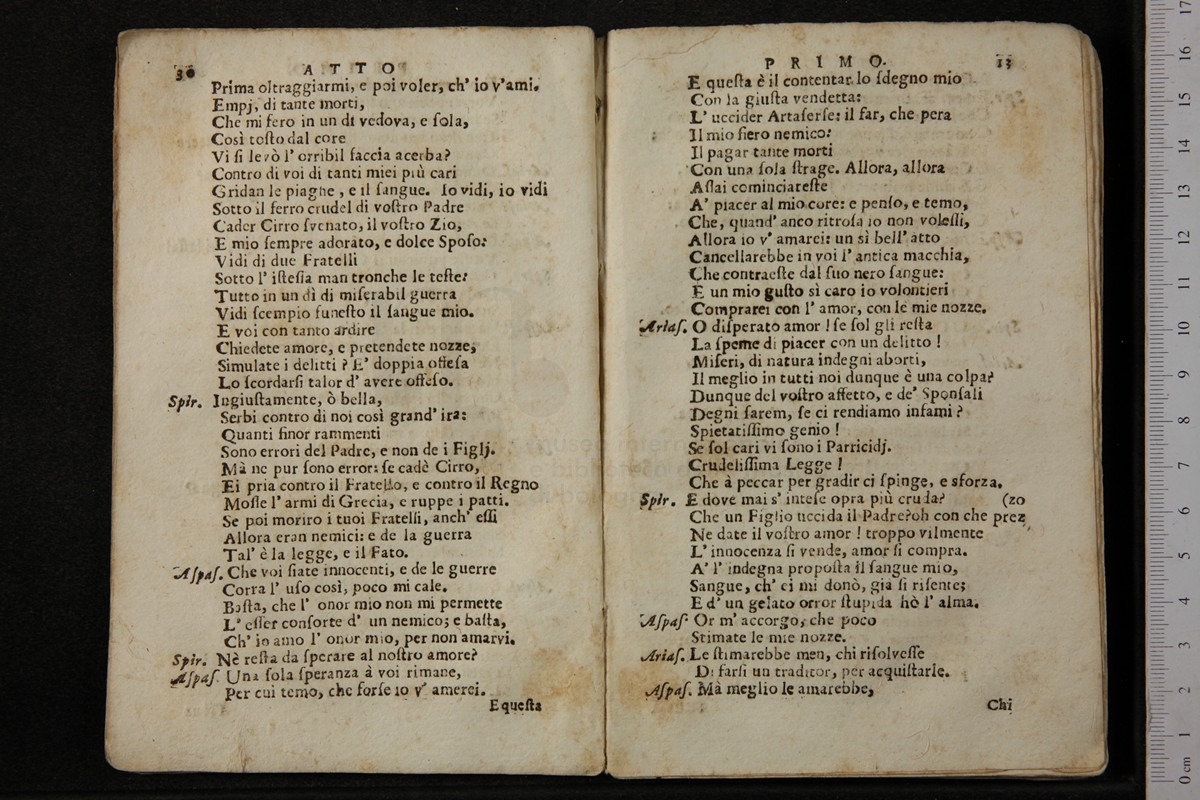 30 ATTO
Prima oltraggiarmi, e poi voler, ch' io v'ami.
Empj, di tante morti,
Che mi fero in un dì vedova, e sola,
Così tosto dal core
Vi si levò l' orribil faccia acerba?
Contro di voi di tanti miei più cari
Gridan le piaghe, e il sangue. Io vidi, io vidi
Sotto il ferro crudel di vostro Padre
Cader Cirro svenato, il vostro Zio,
E mio sempre adorato, e dolce Sposo:
Vidi di due Fratelli
Sotto l' istessa man tronche le teste:
Tutto in un dì di miserabil guerra
Vidi scempio funesto il sangue mio.
E voi con tanto ardire
Chiedete amore, e pretendete nozze,
Simulate i delitti? E' doppia offesa
Lo scordarsi talor d' avere offeso.
Spir. Ingiustamente, ò bella,
Serbi contro di noi così grand' ira:
Quanti finor rammenti
Sono errori del Padre, e non de i Figlj.
Mà ne pur sono error: se cadè Cirro,
Ei pria contro il Fratello, e contro il Regno
Mosse l' armi di Grecia, e ruppe i patti.
Se poi moriro i tuoi Fratelli, anch' essi
Allora eran nemici: e de la guerra
Tal' è la legge, e il Fato.
Aspas. Che voi siate innocenti, e de le guerre
Corra l' uso così, poco mi cale.
Basta, che l' onor mio non mi permette
L' esser consorte d' un nemico; e basta,
Ch' io amo l' onor mio, per non amarvi.
Spir. Nè resta da sperare al nostro amore?
Aspas. Una sola speranza à voi rimane,
Per cui temo, che forse io v' amerei.
E questa
PRIMO. 13
E questa è il contentar lo sdegno mio
Con la giusta vendetta:
L' uccider Artaserse: il far, che pera
Il mio fiero nemico:
Il pagar tante morti
Con una sola strage. Allora, allora
Assai cominciareste
A' piacer al mio core: e penso, e temo,
Che, quand' anco ritrosa io non volessi,
Allora io v' amarei: un sì bell' atto
Cancellarebbe in voi l' antica macchia,
Che contraeste dal suo nero sangue:
E un mio gusto sì caro io volontieri
Comprarei con l' amor, con le mie nozze.
Arias. O disperato amor! se sol gli resta
La speme di piacer con un delitto!
Miseri, di natura indegni aborti,
Il meglio in tutti noi dunque è una colpa?
Dunque del vostro affetto, e de' Sponsali
Degni sarem, se ci rendiamo infami?
Spietatissimo genio!
Se sol cari vi sono i Parricidj.
Crudelissima Legge!
Che à peccar per gradir ci spinge, e sforza.
Spir. E dove mai s' intese opra più cruda? (zo
Che un Figlio uccida il Padre? oh con che prez
Ne date il vostro amor! troppo vilmente
L' innocenza si vende, amor si compra.
A' l' indegna proposta il sangue mio,
Sangue, ch' ei mi donò, già si risente;
E d' un gelato orror stupida hò l' alma.
Aspas. Or m' accorgo, che poco
Stimate le mie nozze.
Arias. Le stimarebbe men, chi risolvesse
Di farsi un traditor, per acquistarle.
Aspas. Mà meglio le amarebbe,
Chi